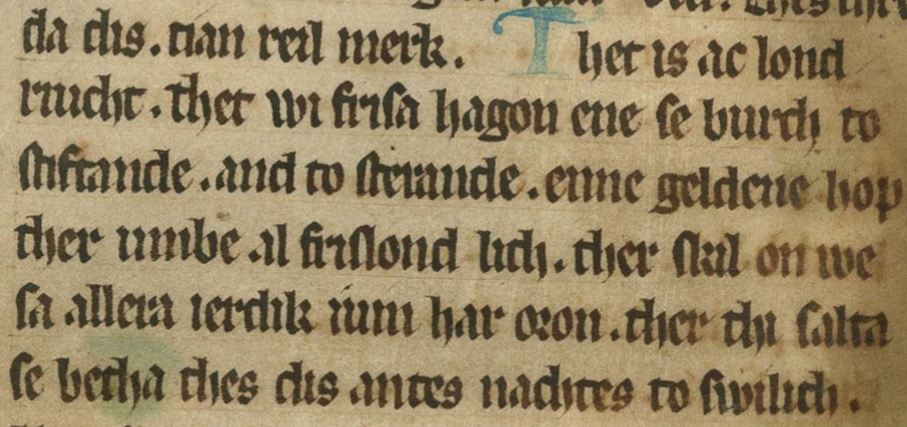 da dis. tian reil merk. Thet is ac lond
riucht. thet wi frisa hagon ene se burch to
stiftande. and to sterande. enne geldene hop
ther umbe al frislond lith. ther skil on we
sa allera ierdik iuin har oron. ther thi salta
se betha thes dis antes nachtes to swilith.